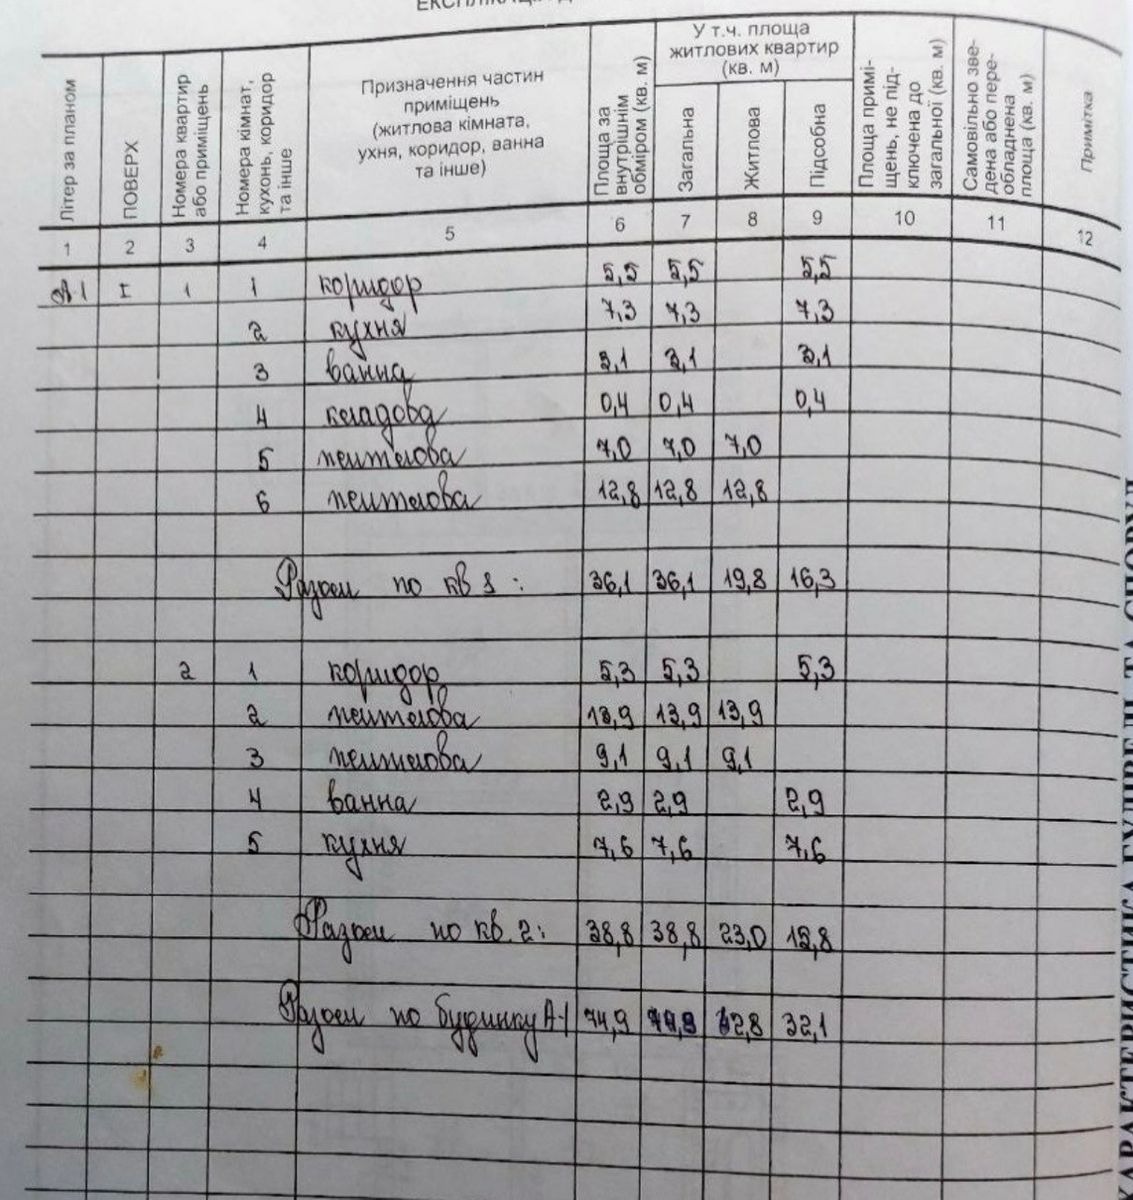 Літер за планом
ПОВЕРХ
Номера квартир або приміщень
Номера кімнат, кухонь, коридор та інше
Призначення частин приміщень (житлова кімната, ухня, коридор, ванна та інше)
Площа за внутрішнім обміром (кв. м)
У т.ч. площа житлових квартир (кв. м)
Загальна
Житлова
Підсобна
Площа примі-щень, не під-ключена до загальної (кв. м)
Самовільно зве-дена або пере-обладнена площа (кв. м)
Примітка
1 2 3 4 5 6 7 8 9 10 11 12
А1 І 1 1 коридор 5,5 5,5 5,5
2 кухня 7,3 7,3 7,3
3 ванна 3,1 3,1 3,1
4 кладова 0,4 0,4 0,4
5 житлова 7,0 7,0 7,0
6 житлова 12,8 12,8 12,8
Разом по кв 1: 36,1 36,1 19,8 16,3
2 1 коридор 5,3 5,3 5,3
2 житлова 13,9 13,9 13,9
3 житлова 9,1 9,1 9,1
4 ванна 2,9 2,9 2,9
5 кухня 7,6 7,6 7,6
Разом по кв. 2: 38,8 38,8 23,0 15,8
Разом по будинку А-1 74,9 74,9 42,8 32,1